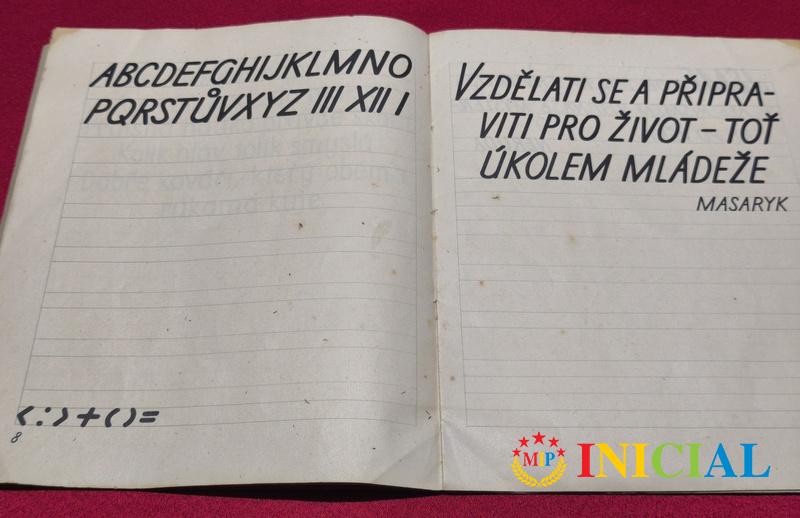 ABCDEFGHIJKLMNO
PQRSTŮVXYZ III XII I
‹:›+()=
8
VZDĚLATI SE A PŘIPRA-
VITI PRO ŽIVOT – TOŤ
ÚKOLEM MLÁDEŽE
MASARYK
MIP INICIAL